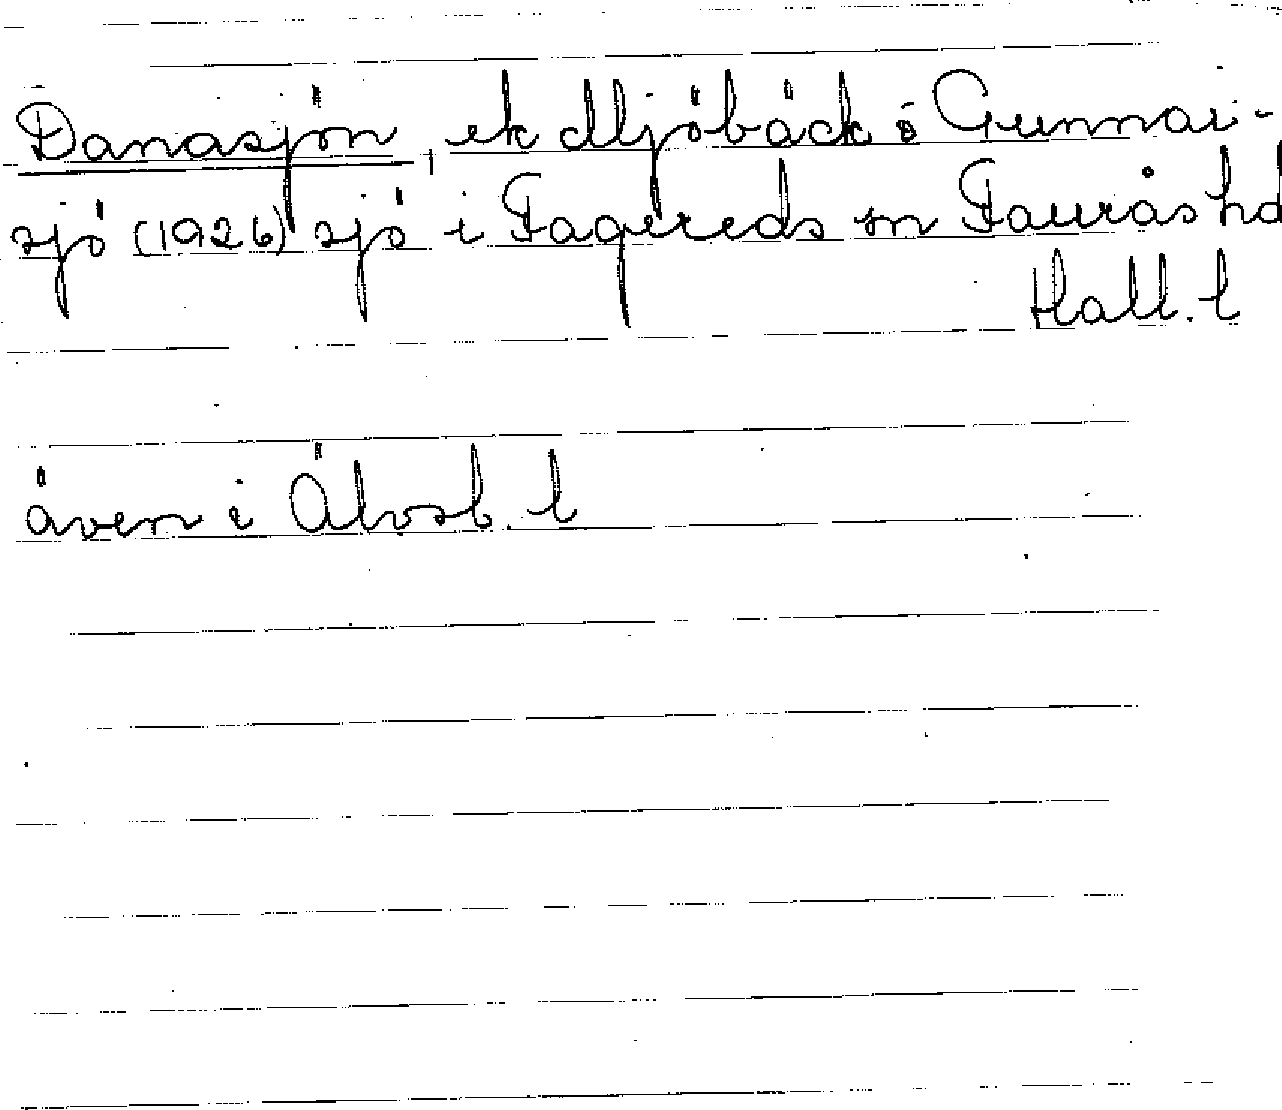 Danasjön, ek Mjöbäck o Gunnar-
sjö (1926) sjö i Fagereds sn Faurås hd
Hall. l
även i Älvsb. l